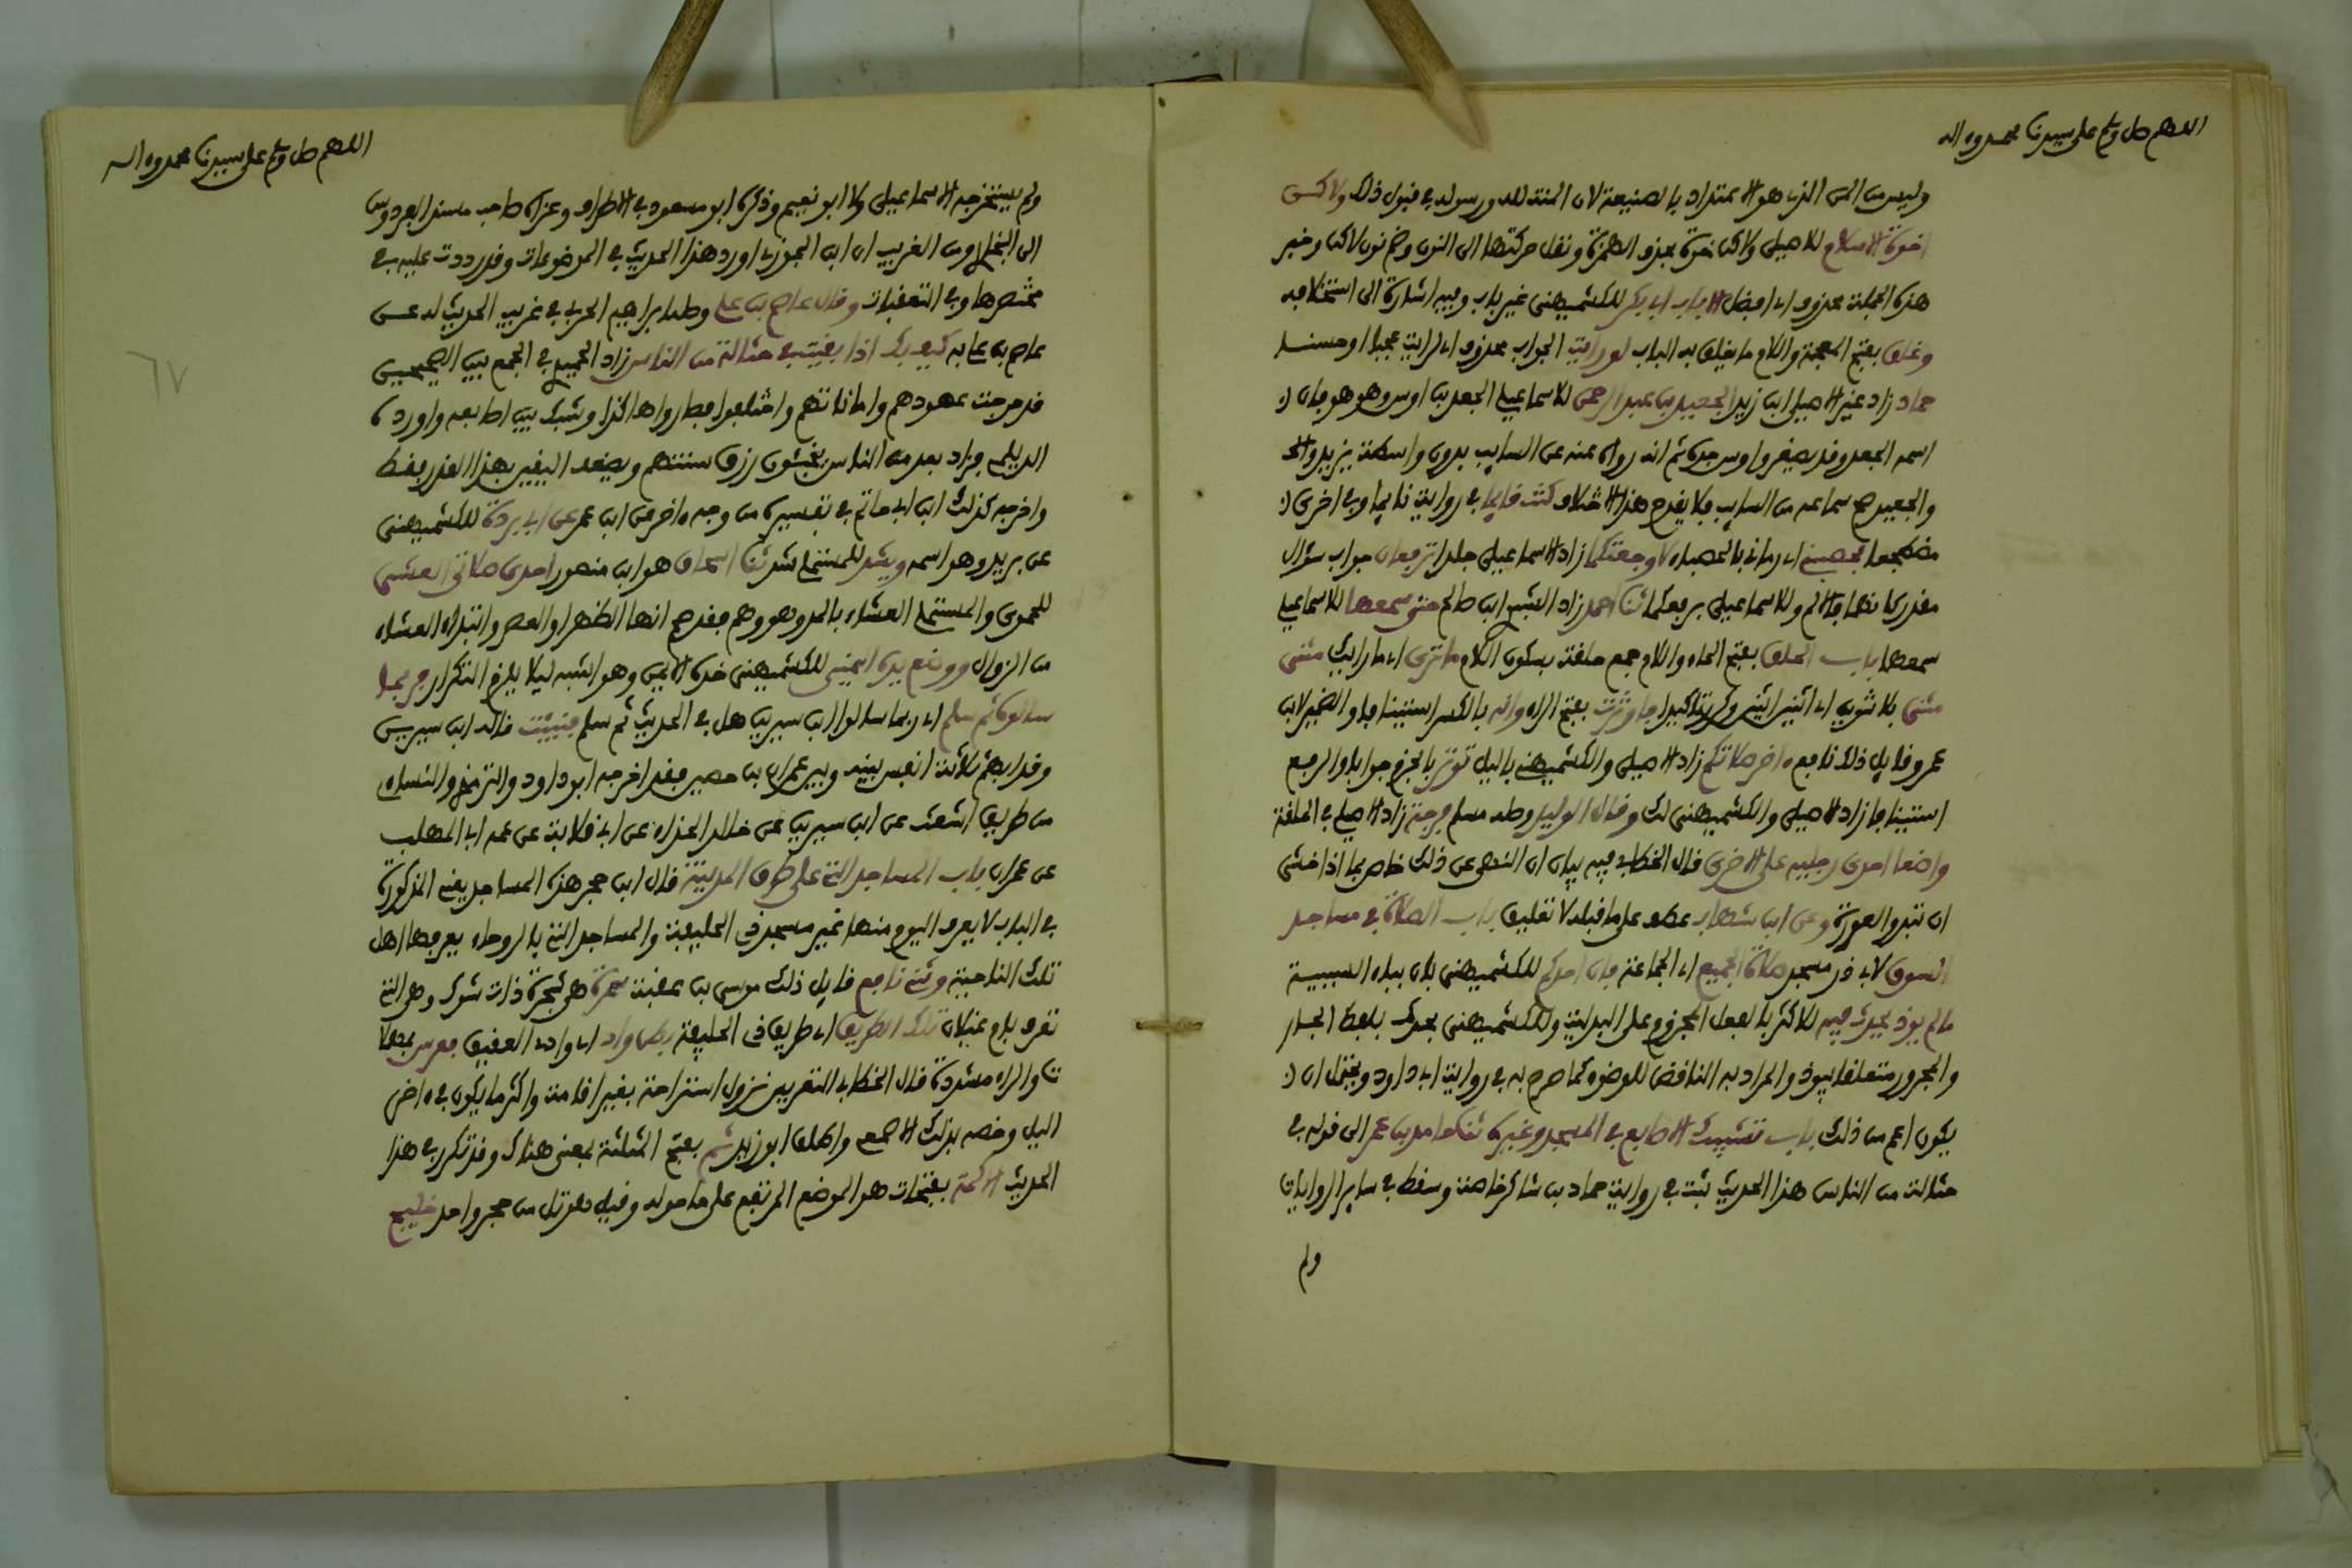 اللهم صل وسلم على سيدنا محمد وءاله
وليس من المن الذي هو الاعتداد بالصنيعة لان المنة لله ورسوله في قبول ذلك ولاكن
اخوة الاسلام للاصيلي ولاكن خوة بحذف الهمزة ونقل حركتها الى النون وضم نون لاكن وخبر
هذه الجملة محذوف اي افضل الا باب ابي بكر للكشميهني غير باب وفيه اشارة الى استخلافه
وغلق بفتح المعجمة واللام ما يغلق به الباب لو رايت الجواب محذوف اي لرايت عجبا او حسنا
حماد زاد غير الاصيلي ابن زيد الجعيد بن عبد الرحمن للاسماعيلي الجعد بن اوس وهو هو فان
اسمه الجعد وقد يصغر واوس جده ثم انه رواه عنه عن السايب بدون واسطة يزيد والحـ
والجعيد صح سماعه من السايب فلا يقدح هذا الاختلاف كنت قايما في رواية نايما وفي اخرى
مضطجعا فحصبني اي رماني بالحصباء لاوجعتكما زاد الاسماعيلي جلدا ترفعان جواب سؤال
مقدر كانهما قالا لم وللاسماعيلي برفعكما ثنا احمد زاد الشبوي ابن صالح حتى سمعها للاسماعيلي
سمعهما باب الحلق بفتح الحاء واللام جمع حلقة بسكون اللام ما ترى اي ما رايك مثنى
مثنى بلا تنوين اي اثنين اثنين وكرر تاكيدا فاوترت بفتح الراء وانه بالكسر استينافا والضمير لابن
عمر وقايل ذلك نافع ءاخر صلاتكم زاد الاصيلي والكشميهني باليل توتر بالجزم جوابا والرفع
استينافا زاد الاصيلي والكشميهني لك وقال الوليد وصله مسلم فرجة زاد الاصيلي في الحلقة
واضعا احدى رجليه على الاخرى قال الخطابي فيه بيان ان النهي عن ذلك خاص بما اذا خشي
ان تبدو العورة وعن ابن شهاب عطف على ما قبله لا تعليق باب الصلاة في مساجد
السوق لابي ذر مسجد صلاة الجميع اي الجماعة فان احدكم للكشميهني بان بباء السببية
ما لم يوذ يحدث فيه للاكثر بالفعل المجزوم على البدلية وللكشميهني بحدث بلفظ الجار
والمجرور متعلقا بيوذ والمراد به الناقض للوضوء كما صرح به في رواية ابي داود ويحتمل ان
يكون اعم من ذلك باب تشبيك الاصابع في المسجد وغيره ثنا حامد بن عمر الى قوله في
حثالة من الناس هذا الحديث ثبت في رواية حماد بن شاكر خاصة وسقط في ساير الروايات
ولم
اللهم صل وسلم على سيدنا محمد وءاله
ولم يستخرجه الاسماعيلي ولا ابو نعيم وذكره ابو مسعود في الاطراف وعزاه صاحب مسند الفردوس
الى البخاري ومن الغريب ان ابن الجوزي اورد هذا الحديث في الموضوعات وقد رددت عليه في
مختصرها وفي التعقبات وقال عاصم بن علي وصله ابراهيم الحربي في غريب الحديث له عن
عاصم بن علي به كيف بك اذا بقيت في حثالة من الناس زاد الحميدي في الجمع بين الصحيحين
قد مرجت عهودهم واماناتهم واختلفوا فصاروا هاكذا وشبك بين اصابعه واورده
الديلمي وزاد بعد من الناس يخبئون رزق سنتهم ويضعف اليقين بهذا القدر فقط
واخرجه كذلك ابن ابي حاتم في تفسيره من وجه ءاخر عن ابن عمر عن ابي بردة للكشميهني
عن بريد وهو اسمه ويشد للمستملي شد ثنا اسحاق هو ابن منصور احدى صلاتي العشي
للحموي والمستملي العشاء بالمد وهو وهم فقد صح انها الظهر او العصر وابتداء العشاء
من الزوال ووضع يده اليمنى للكشميهني خده الايمن وهو اشبه ليلا يلزم التكرار فربما
سالوه ثم سلم اي ربما سالوا ابن سيرين هل في الحديث ثم سلم فنبئت قاله ابن سيرين
وقد ابهم ثلاثة انفس بينه وبين عمران بن حصين فقد اخرجه ابو داود والترمذي والنساءي
من طريق اشعث عن ابن سيرين عن خالد الحذاء عن ابي قلابة عن عمه ابي المهلب
عن عمران باب المساجد التي على طرق المدينة قال ابن حجر هذه المساجد يعني المذكورة
في الباب لا يعرف اليوم منها غير مسجد ذي الحليفة والمساجد التي بالروحاء يعرفها اهل
تلك الناحية وثني نافع قايل ذلك موسى بن عقبة سمرة هي شجرة ذات شوك وهي التي
تعرف بام غيلان تلك الطريق اي طريق ذي الحليفة بطن واد اي وادي العقيق فعرس بمهملا
ت والراء مشددة قال الخطابي التعريس نزول استراحة بغير اقامة واكثر ما يكون في ءاخر
اليل وخصه بذلك الاصمعي واطلق ابو زيد ثم بفتح المثلثة بمعنى هناك وقد تكرر في هذا
الحديث الاكمة بفتحات هو الموضع المرتفع على ما حوله وقيل هو تل من حجر واحد خليج
٦٧